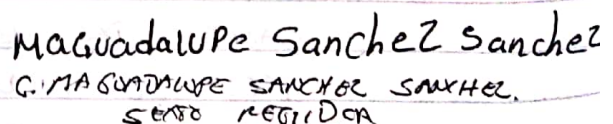 MaGuadaluPe Sanchez Sanchez
C. MA GUADALUPE SANCHEZ SANCHEZ.
SEXTO REGIDOR